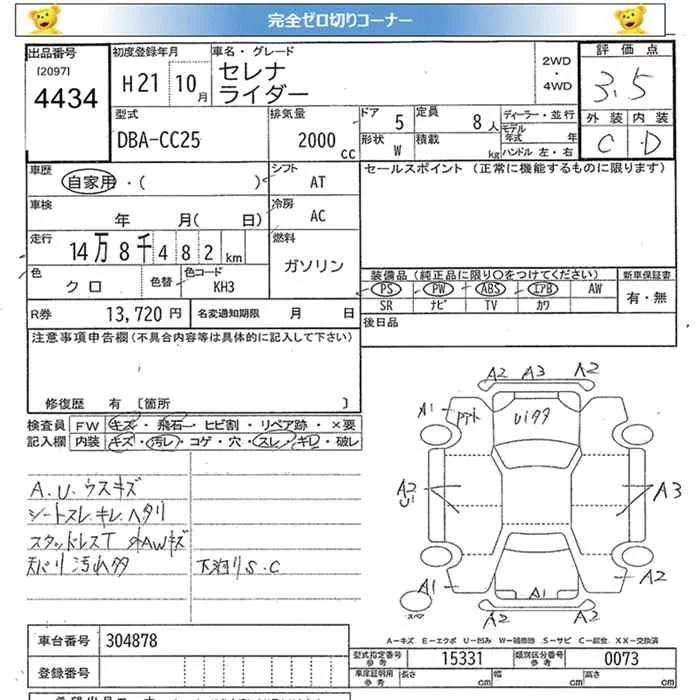 完全ゼロ切りコーナー
出品番号
[2097]
4434
初度登録年月
H21 10月
車名・グレード
セレナ
ライダー
2WD
・
4WD
評価点
3.5
外装 内装
C D
型式
DBA-CC25
排気量
2000
cc
ドア 5
定員 8人
形状 W
積載 kg
ディーラー・並行
モデル年式 年
ハンドル 左・右
車歴
自家用・( )
シフト
AT
セールスポイント (正常に機能するものに限ります)
車検
年 月( 日)
冷房
AC
走行
14万8千482km
燃料
ガソリン
色
クロ
色替
色コード
KH3
装備品(純正品に限り○をつけてください)
新車保証書
PS PW ABS エアB AW
有・無
SR ナビ TV カワ
R券 13,720円
名変通知期限 月 日
後日品
注意事項申告欄(不具合内容等は具体的に記入して下さい)
修復歴 有 [箇所 ]
検査員記入欄
FW キズ・飛石・ヒビ割・リペア跡・×要
内装 キズ・汚レ・コゲ・穴・スレ・キレ・破レ
A.U.ウスキズ
シートスレ.キレ.ヘタリ
スタッドレスT 外AWキズ
天バリ汚れタタ
下廻りS.C
A2 A3 A2
A1
A2
U1
A3
A1
A1
A2
A2 A2
スペア
A-キズ E-エクボ U-凹み W-補修跡 S-サビ C-腐食 XX-交換済
車台番号 304878
登録番号
型式指定番号
参考
15331
類別区分番号
参考
0073
車庫証明用
参考
長さ cm 幅 cm 高さ cm